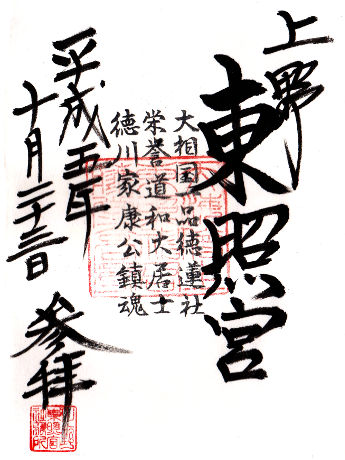 上野
東照宮
大相国一品徳蓮社
栄誉道和大居士
徳川家康公鎮魂
平成五年
十月二十三日
参拝